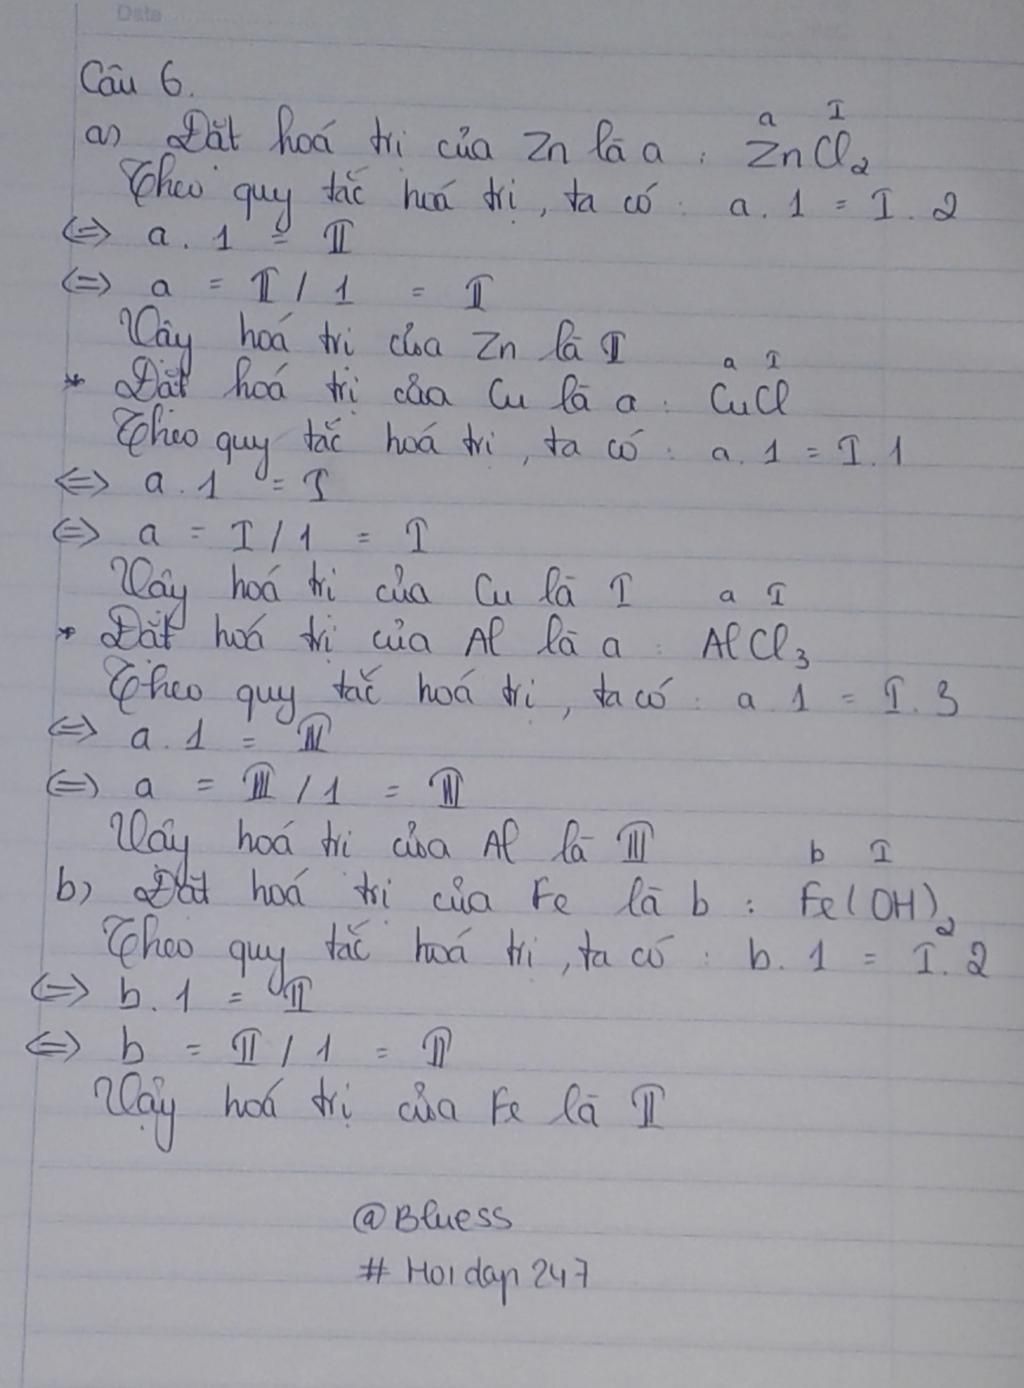 Date
Câu 6.
a I
a) Đặt hoá trị của Zn là a : ZnCl₂
Theo quy tắc hoá trị, ta có : a . 1 = I . 2
<=> a . 1 = II
<=> a = II / 1 = II
Vậy hoá trị của Zn là II
a I
* Đặt hoá trị của Cu là a : CuCl
Theo quy tắc hoá trị, ta có : a . 1 = I . 1
<=> a . 1 = I
<=> a = I / 1 = I
Vậy hoá trị của Cu là I
a I
* Đặt hoá trị của Al là a : AlCl₃
Theo quy tắc hoá trị, ta có : a . 1 = I . 3
<=> a . 1 = III
<=> a = III / 1 = III
Vậy hoá trị của Al là III
b I
b) Đặt hoá trị của Fe là b : Fe(OH)₂
Theo quy tắc hoá trị, ta có : b . 1 = I . 2
<=> b . 1 = II
<=> b = II / 1 = II
Vậy hoá trị của Fe là II
@Bluess
# Hoidap247